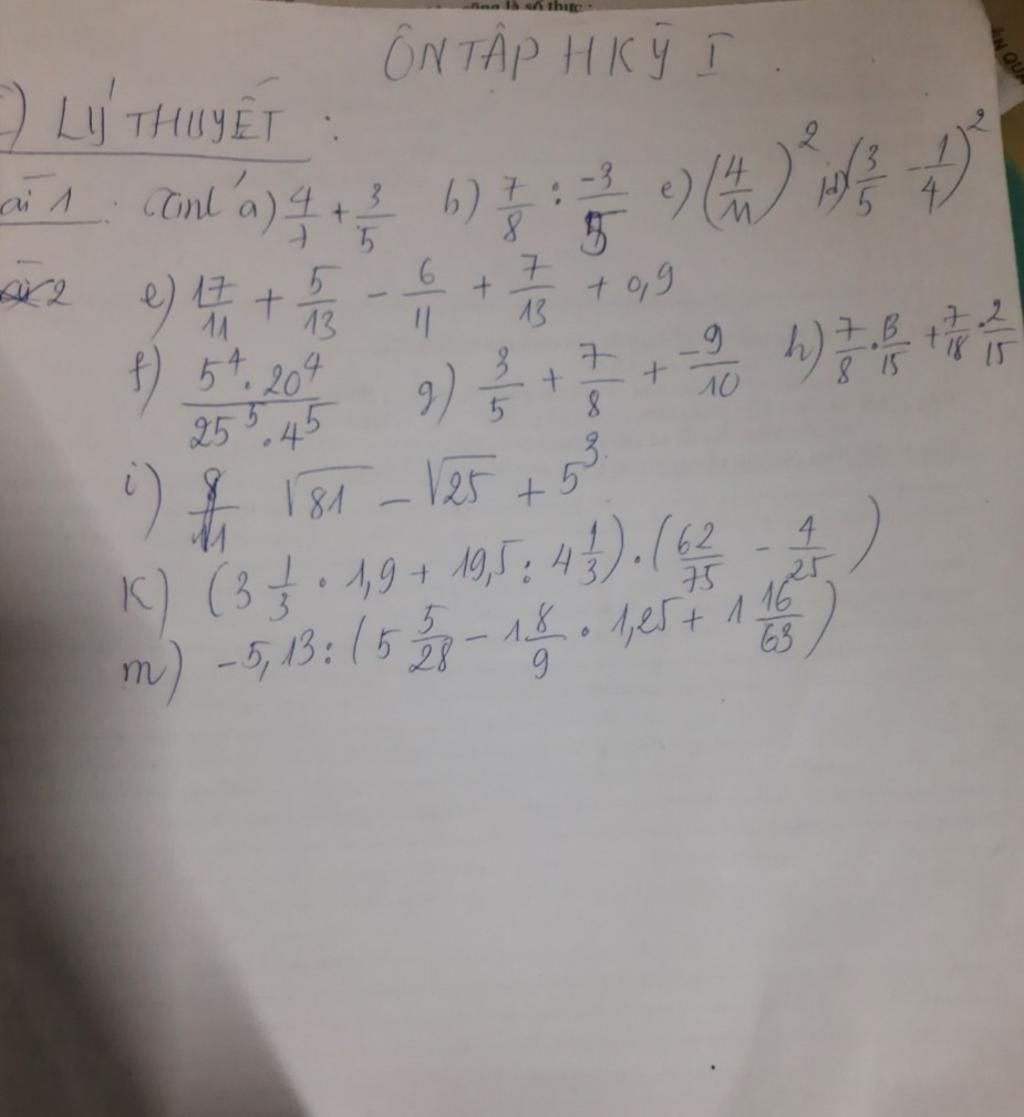 cũng là số thực.
ÔN TẬP H KỲ I
) LÝ THUYẾT :
ài 1. Tính a) 4/7 + 3/5 b) 7/8 : -3/5 c) (4/11)² d) (3/5 - 1/4)²
2 e) 17/11 + 5/13 - 6/11 + 7/13 + 0,9
f) 5⁴.20⁴/25⁵.4⁵ g) 3/5 + 7/8 + -9/10 h) 7/8 . 13/15 + 7/18 . 2/15
i) √81 - √25 + 5³
K) (3 1/3 . 1,9 + 19,5 : 4 1/3) . (62/75 - 4/25)
m) -5,13 : (5 5/28 - 1 8/9 . 1,25 + 1 16/63)